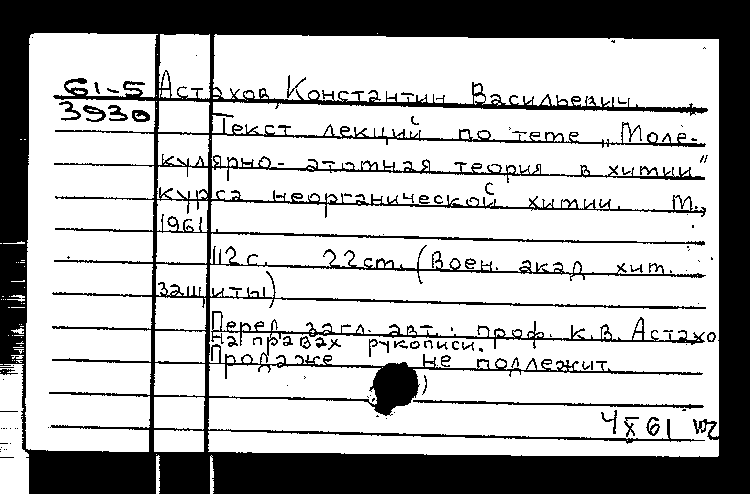 61-5 Астахов, Константин Васильевич.
3930
Текст лекций по теме „Моле-
кулярно-атомная теория в химии"
курса неорганической химии. М.,
1961.
112 с. 22 см. (Воен. акад. хим.
защиты)
Перед загл. авт.: проф. К. В. Астахо
На правах рукописи.
Продаже не подлежит.
4 X 61